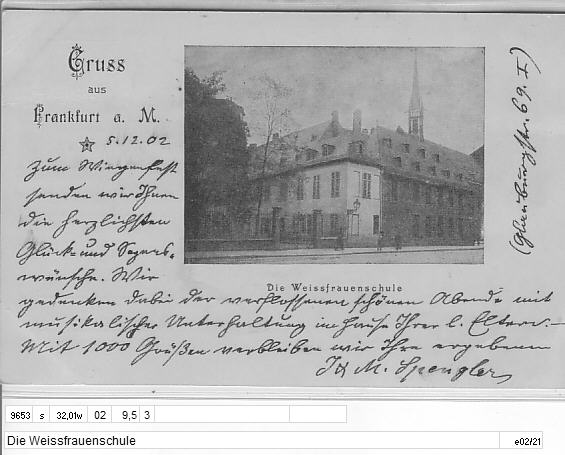 Gruss
aus
Frankfurt a. M.
5.12.02
Zum Wiegenfest
senden wir Ihnen
die herzlichsten
Glück- und Segens-
wünsche. Wir
gedenken dabei der verflossenen schönen Abende mit
musikalischer Unterhaltung im Hause Ihrer l. Eltern.-
Mit 1000 Grüßen verbleiben wir Ihre ergebenen
J & M. Spengler
(Glauburgstr. 69. I)
Die Weissfrauenschule
9653 s 32,01w 02 9,5 3
Die Weissfrauenschule e02/21